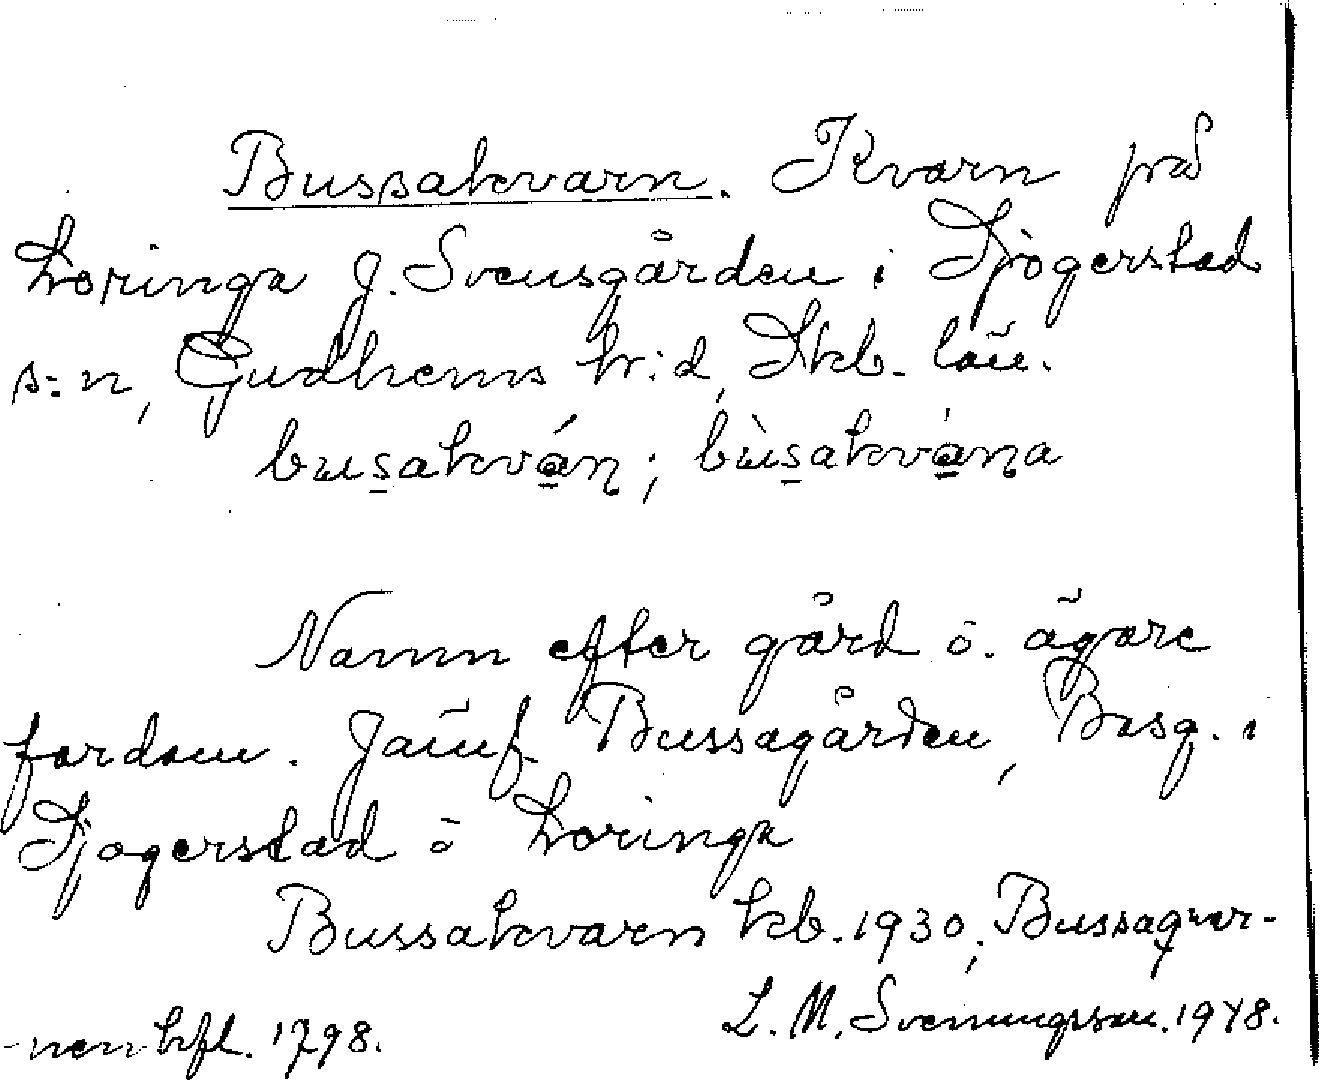 Bussakvarn. Kvarn på
Loringa g. Svensgården i Sjögerstad
s:n, Gudhems hr:d, Skb. län.
busakván; bùsakvána
Namn efter gård o. ägare
fordom. Jämf. Bussagården, Bosg. i
Sjogerstad o Loringa
Bussakvarn kb. 1930, Bussaqvar-
-nen hfl. 1798.
L. M. Svenungsson. 1948.